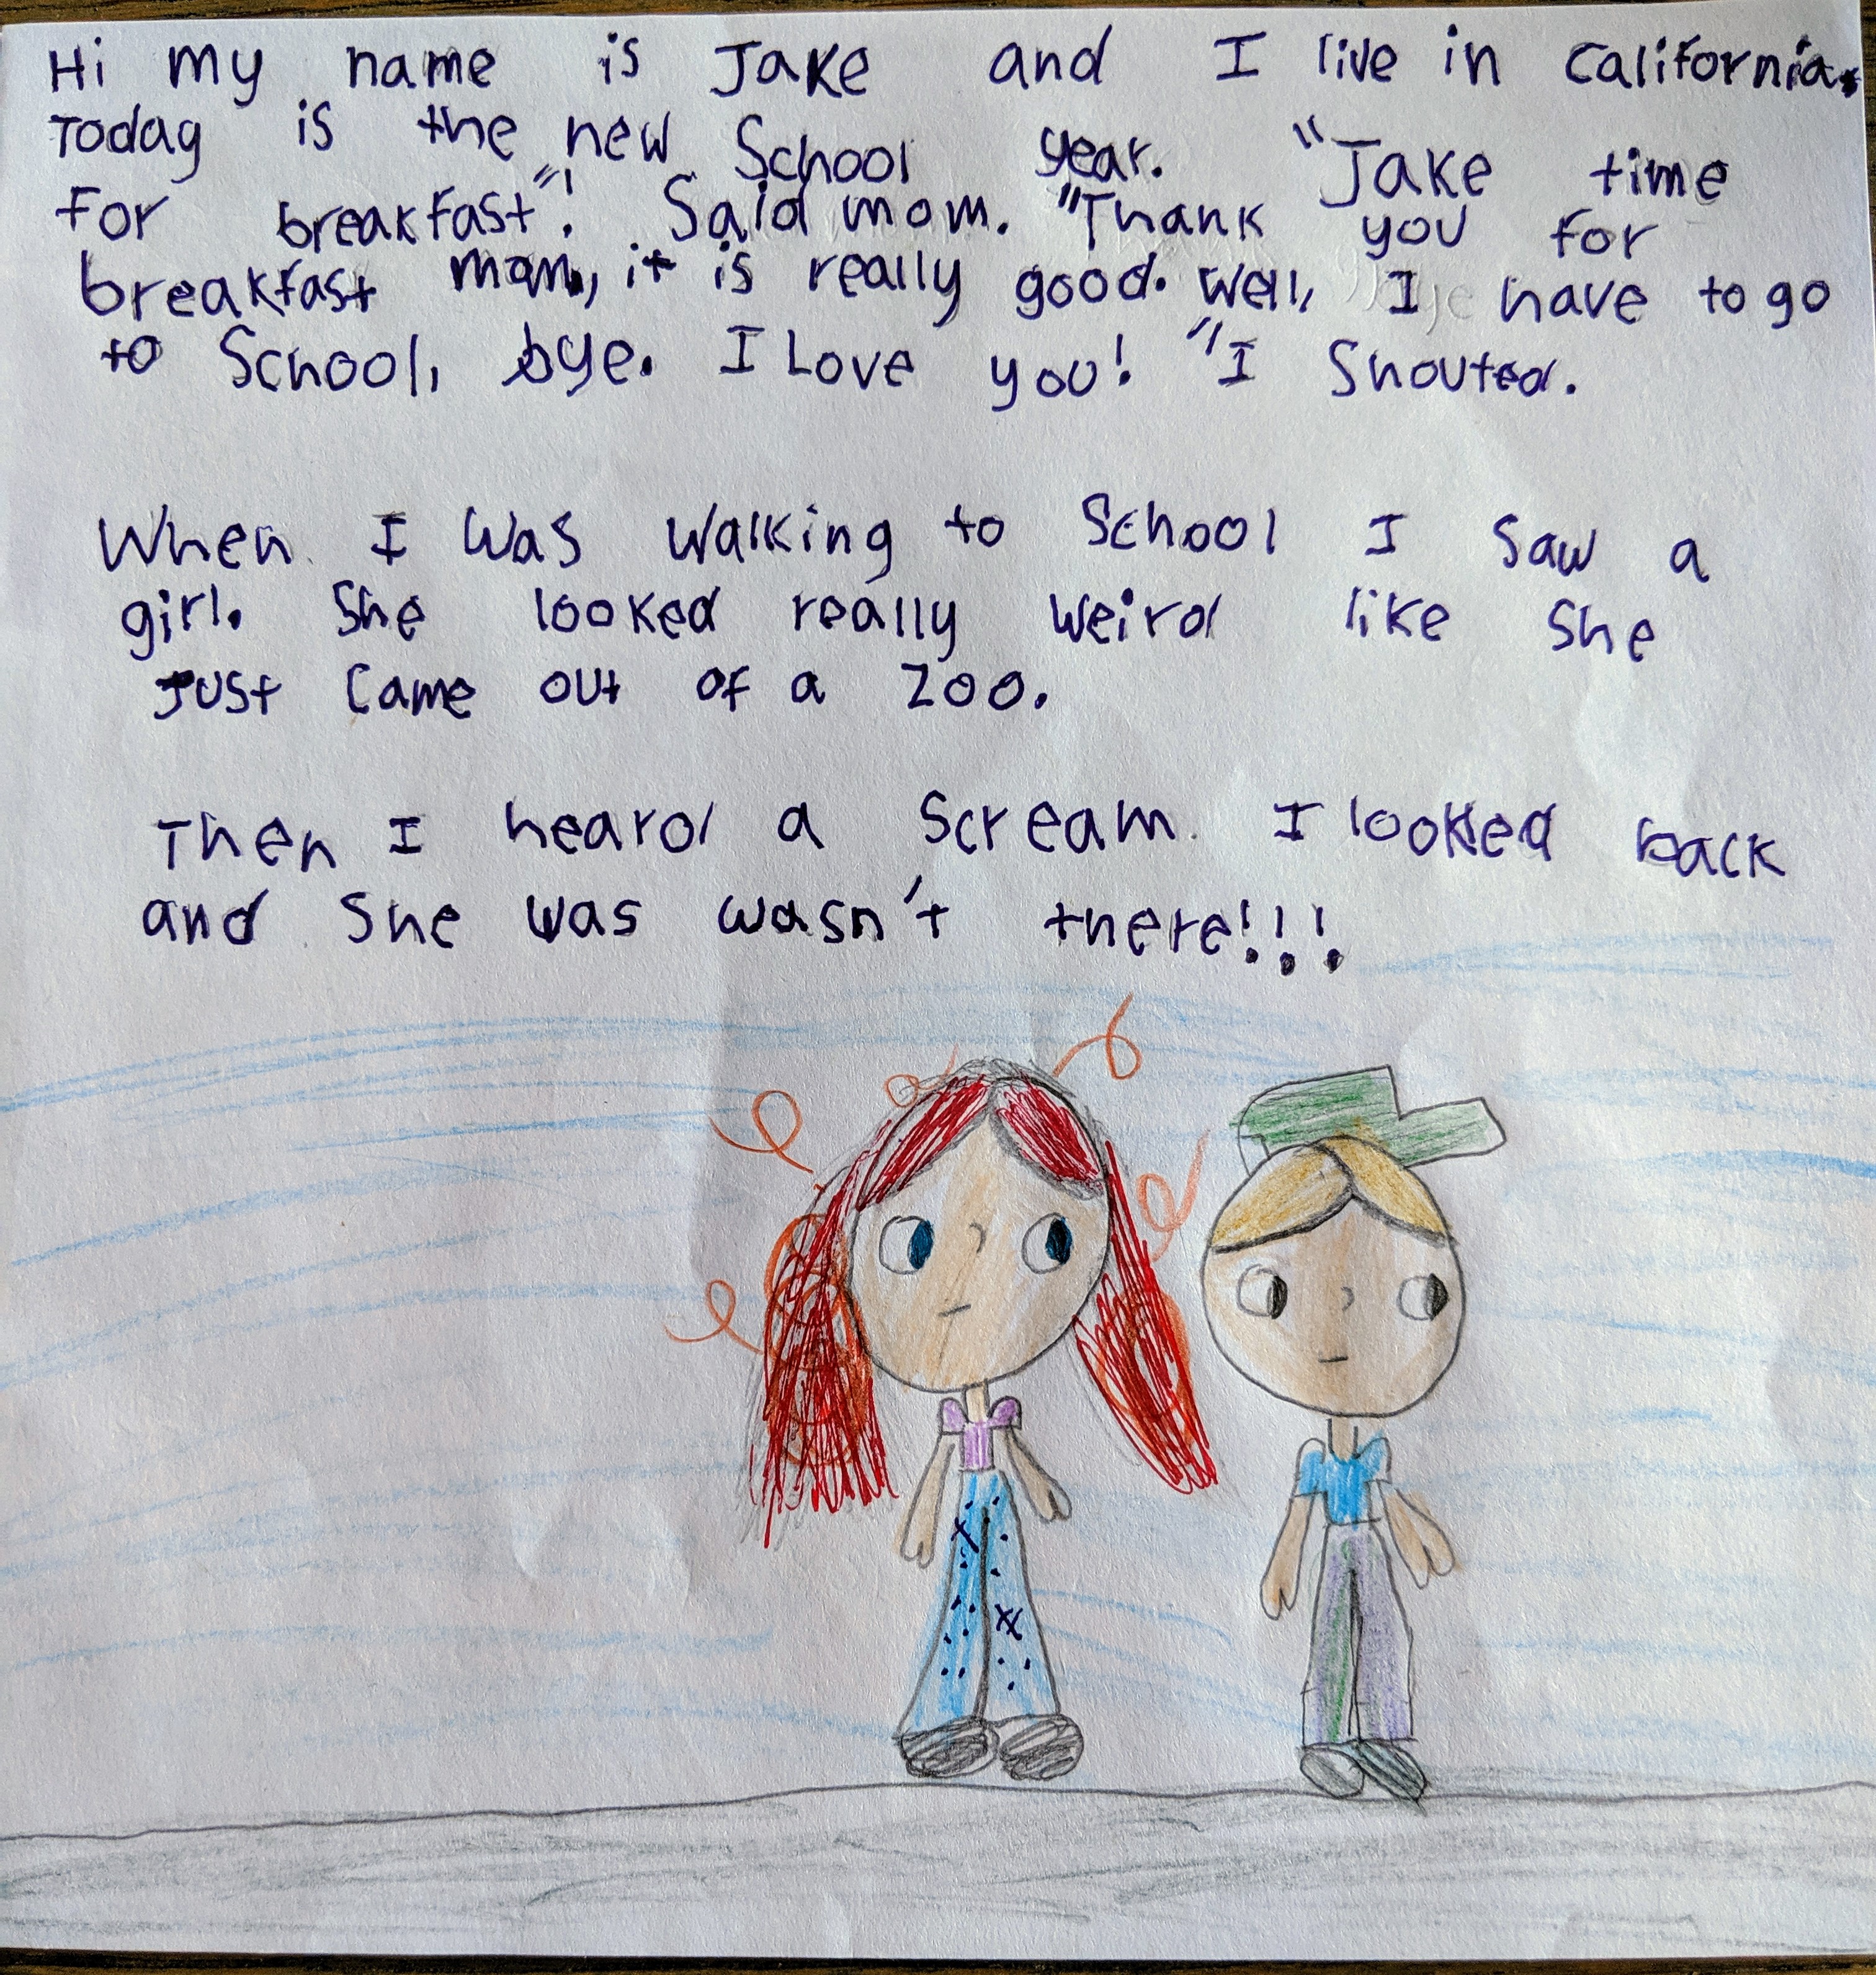 Hi my name is Jake and I live in California.
Today is the new School year. "Jake time
for breakfast"! Said mom. "Thank you for
breakfast mom, it is really good. Well, I have to go
to School, bye. I Love you! "I Shouted.
When I was walking to School I saw a
girl. She looked really weird like she
Just Came out of a Zoo.
Then I heard a scream. I looked back
and she was wasn't there!!!